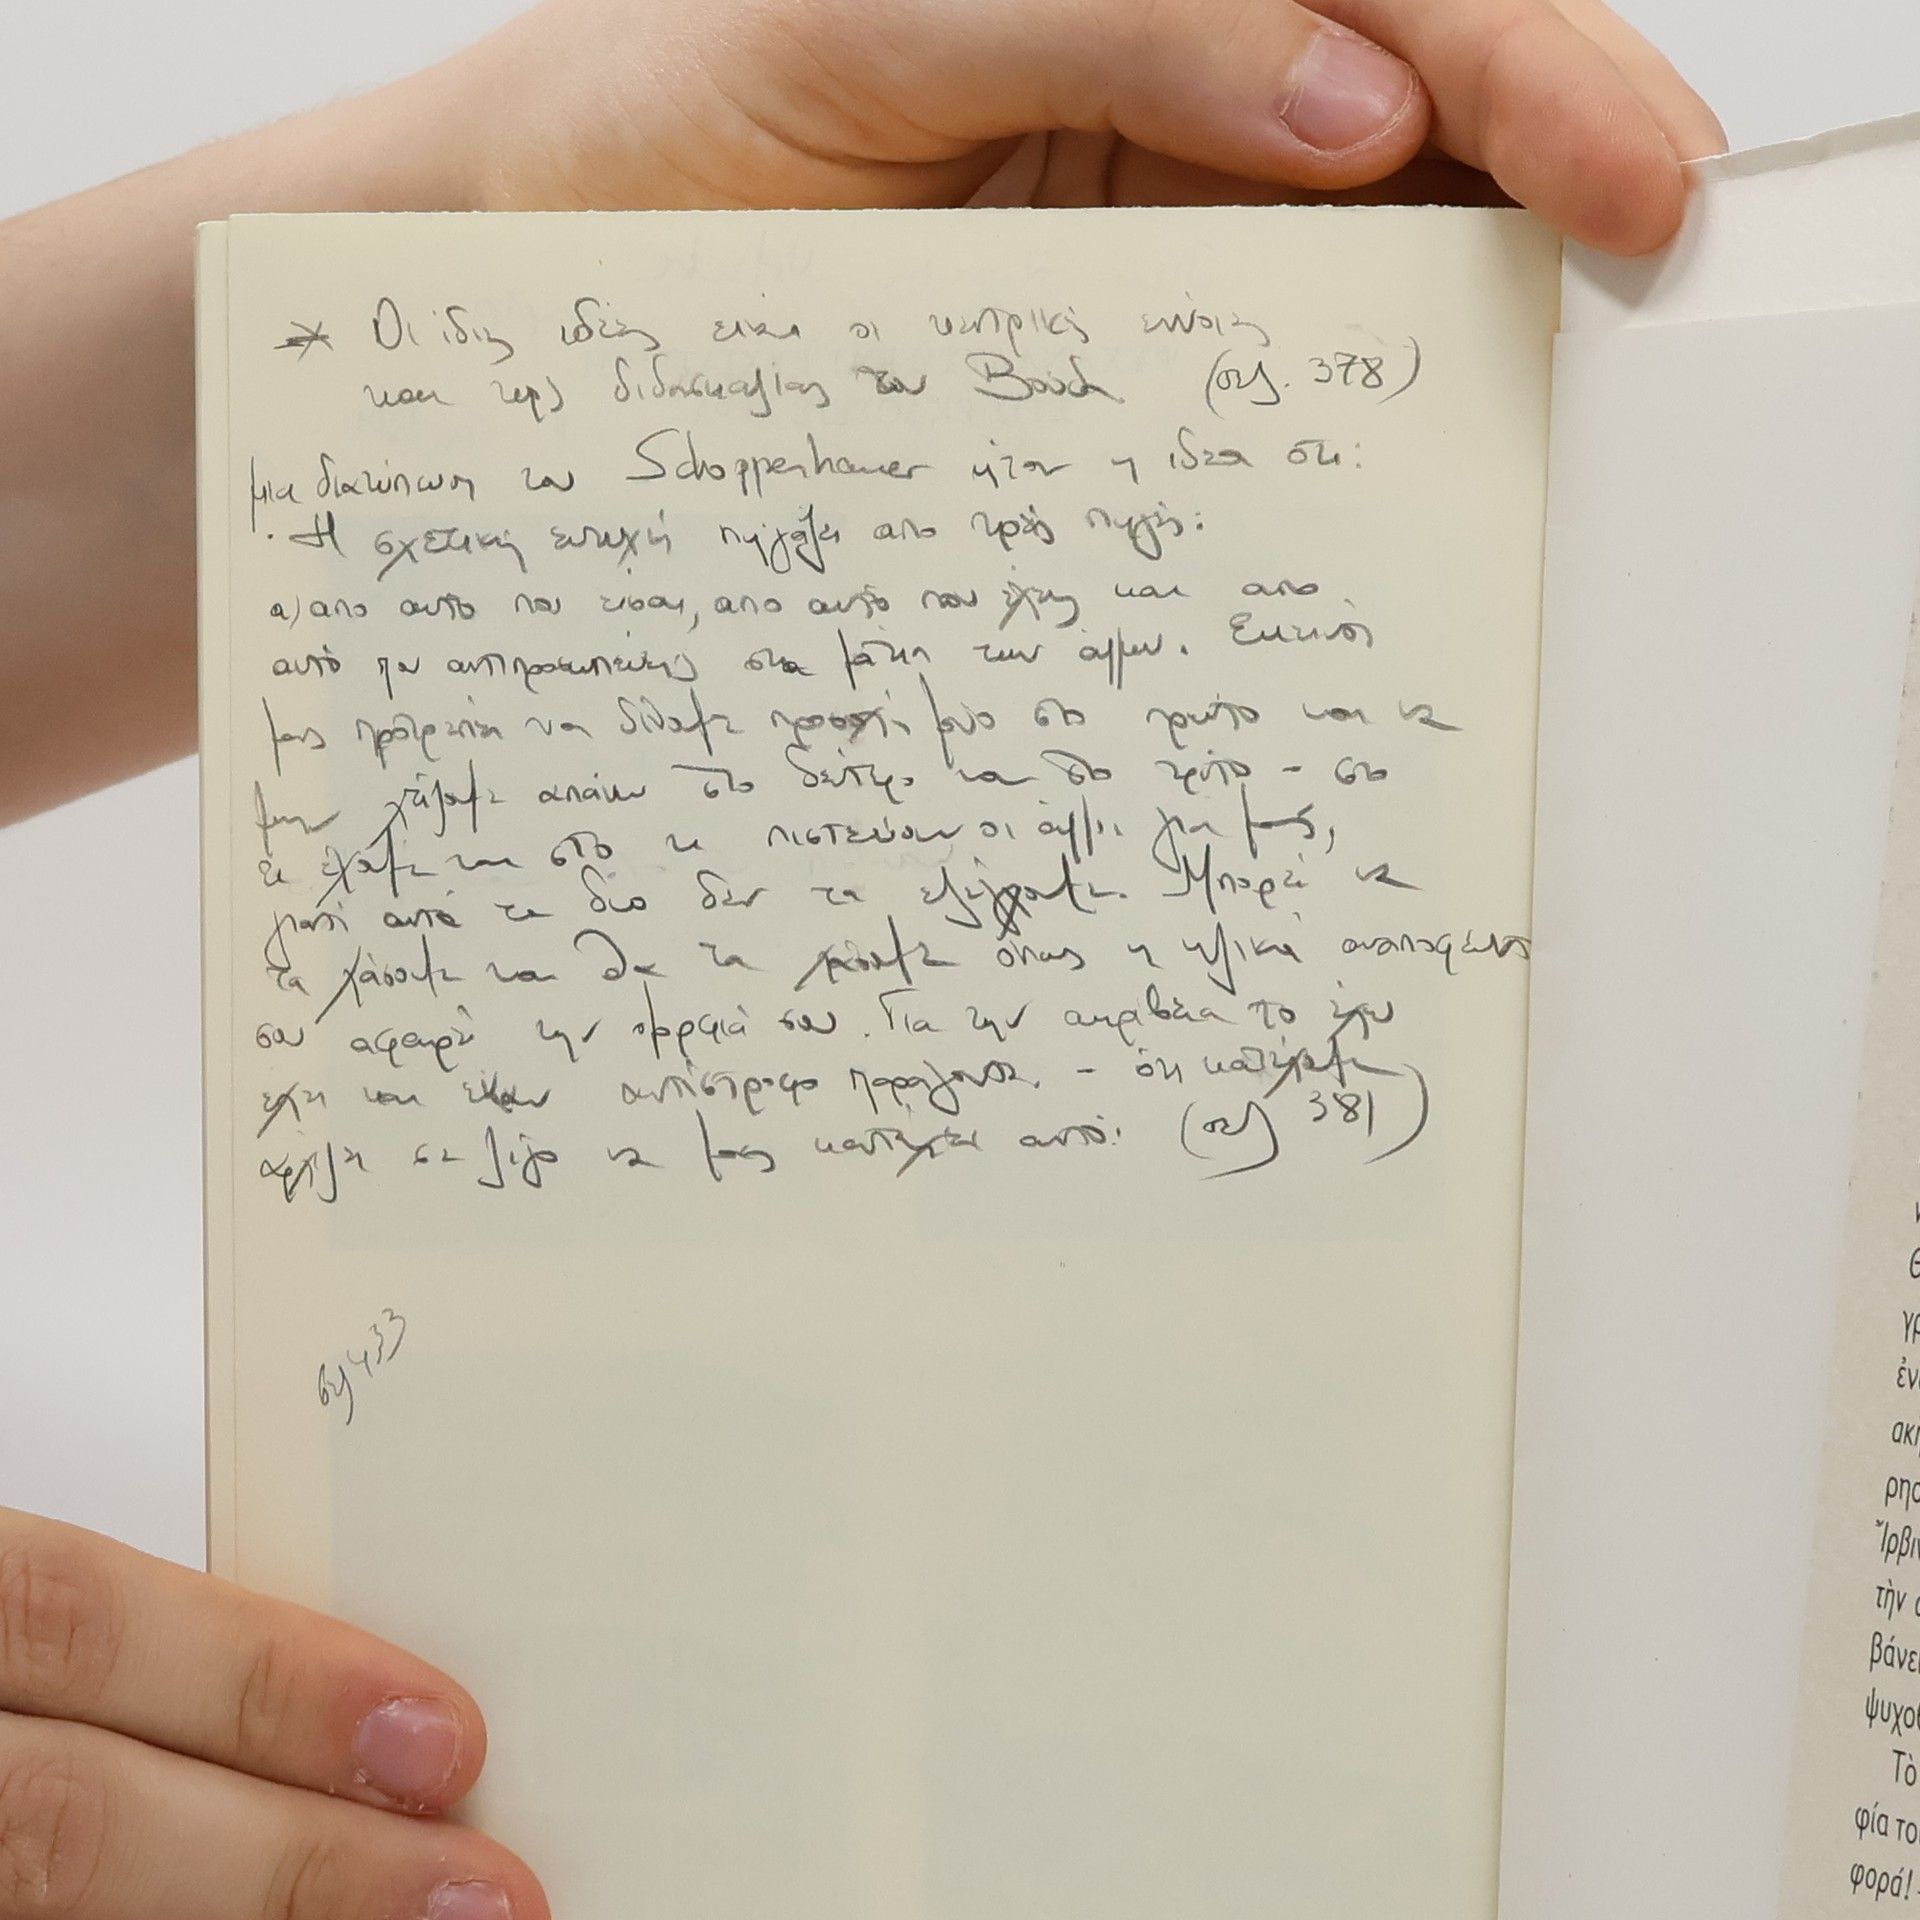 * Οι ίδιες ιδέες είναι οι κεντρικές έννοιες
και της διδασκαλίας του Βουδα (σελ. 378)
μια διατύπωση του Schoppenhauer ήταν η ιδεα ότι:
. Η σχετική ευτυχή πηγάζει απο τρείς πηγές:
α) απο αυτό που είσαι, απο αυτό που έχεις και απο
αυτό που αντιπροσωπεύεις στα μάτια των άλλων. Εκεινός
μας πρότρεπει να δίνουμε προσοχή μόνο στο πρώτο και να
μην χτίζουμε απάνω στο δεύτερο και στο τρίτο - στο
τι έχουμε και στο τι πιστεύουν οι άλλοι για μας,
γιατί αυτά τα δύο δεν τα ελέγχουμε. Μπορεί να
τα χάσουμε και θα τα χάσουμε όπως η ηλικιά αναποφευκτα
σου αφαιρεί την ομορφιά σου. Για την ακρίβεια το έχω
έχει και εναν αντίστροφο παράγοντα - ότι κατέχουμε
αρχίζει σε λίγο να μας κατέχει αυτό! (σελ 381)
σελ 433
κ
θ
γρ
ἐν
ακι
ρησ
Ἴρβιν
τὴν
βάνε
ψυχοθ
Τὸ
φία το
φορά! -